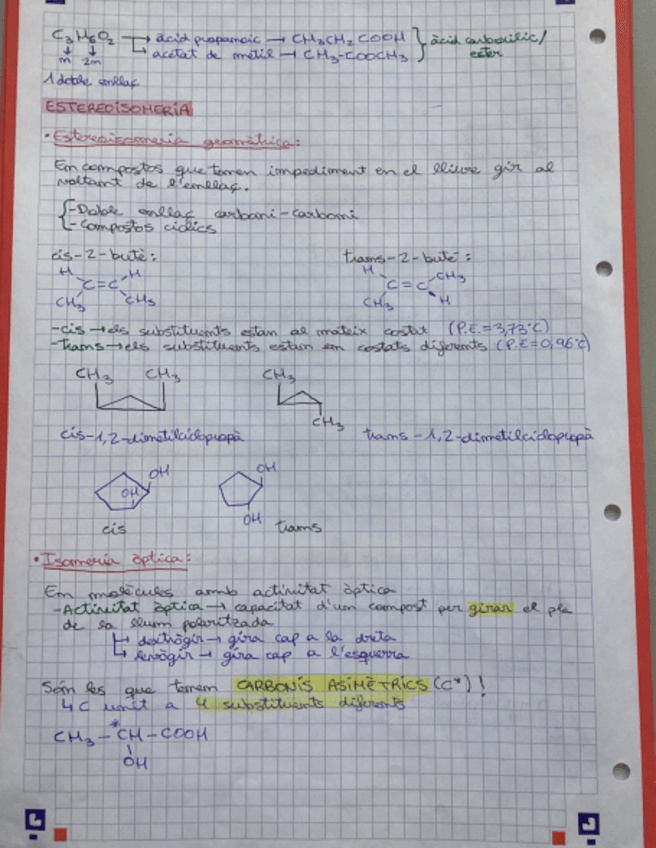 C3H6O2 → àcid propanoic → CH3CH2COOH } àcid carboxílic/
n 2n ↳ acetat de metil → CH3-COOCH3 } ester
1 doble enllaç
ESTEREOISOMERIA
• Estereoisomeria geomètrica:
En compostos que tenen impediment en el lliure gir al
voltant de l'enllaç.
- Doble enllaç carboni-carboni
- Compostos cíclics
cis-2-butè: trans-2-butè:
H H H CH3
C=C C=C
CH3 CH3 CH3 H
- cis → els substituents estan al mateix costat (P.E.=3,73°C)
- trans → els substituents estan en costats diferents (P.E=0,96°C)
CH3 CH3 CH3
CH3
cis-1,2-dimetilciclopropà trans-1,2-dimetilciclopropà
OH OH
OH
OH
cis trans
• Isomeria òptica:
En molècules amb activitat òptica
- Activitat òptica → capacitat d'un compost per girar el pla
de la llum polaritzada
↳ dextrògir → gira cap a la dreta
↳ levògir → gira cap a l'esquerra
Són les que tenen CARBONIS ASIMÈTRICS (C*)!
4C unit a 4 substituents diferents
CH3-*CH-COOH
OH